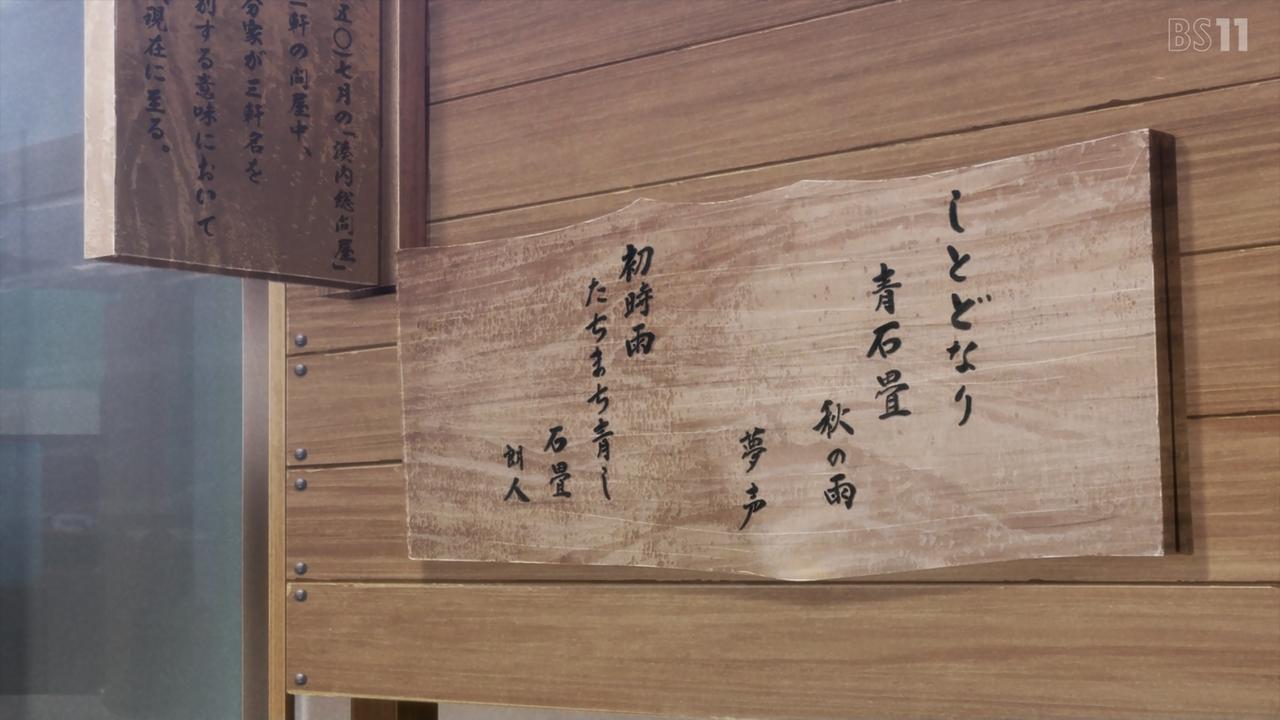 BS11
五〇)七月の「湊内総問屋」
一軒の問屋中、
分家が三軒名を
別する意味において
現在に至る。
しとどなり
青石畳
秋の雨
夢声
初時雨
たちまち青し
石畳
朗人